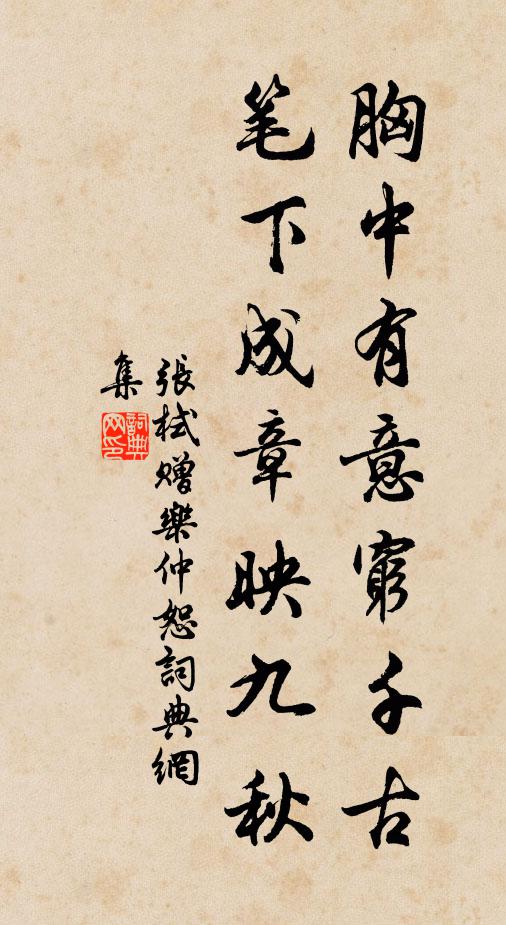 胸中有意窮千古
笔下成章映九秋
張栻赠樂仲恕詞典網
集
詞典
网印